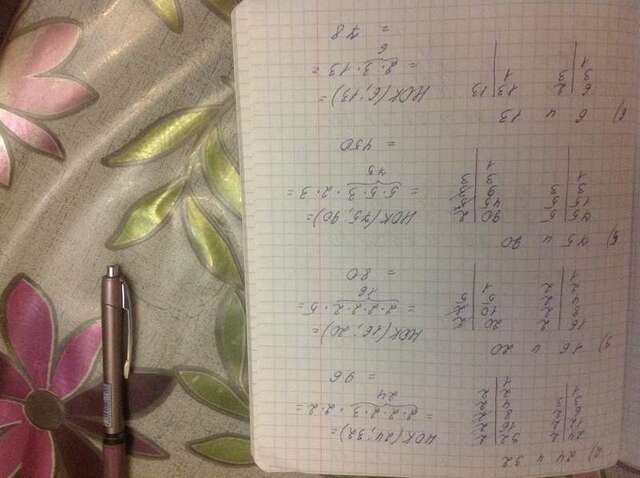 2) 24 и 32
24 | 2   32 | 2   НОК(24; 32) =
12 | 2   16 | 2   = 2·2·2·3 · 2·2 =
6 | 2   8 | 2   24
3 | 3   4 | 2   = 96
1   2 | 2
1
3) 16 и 20
16 | 2   20 | 2   НОК(16; 20) =
8 | 2   10 | 2   = 2·2·2·2 · 5 =
4 | 2   5 | 5   16
2 | 2   1   = 80
1
5) 75 и 90
75 | 5   90 | 2   НОК(75, 90) =
15 | 5   45 | 5   = 5·5·3 · 2·3 =
3 | 3   9 | 3   75
1   3 | 3   = 450
1
6) 6 и 13
6 | 2   13 | 13   НОК(6; 13) =
3 | 3   1   = 2·3 · 13 =
1   6
= 78